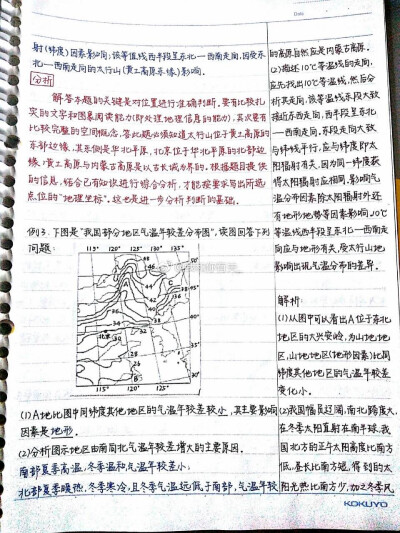 射(纬度)因素影响;该等值线西半段呈东北—西南走向,因受东
北—西南走向的太行山(黄土高原东缘)影响。
分析
解答本题的关键是对位置进行准确判断。要有比较扎
实的文字和图幕阅读能力(即处理地理信息的能力),其次要有
比较完整的空间概念,答此题必须知道太行山位于黄土高原的
东部边缘,其东侧是华北平原,北京位于华北平原的北部边
缘,黄土高原与内蒙古高原是以古长城为界的。根据题目提供
的信息,结合已有知识进行综合分析,才能按要求写出所选
点位的“地理坐标”。这也是进一步分析判断的基础。
例3.下图是“我国部分地区气温年较差分布图”,读图回答下列
问题:
115° 120° 125° 130° 135°
北京
115° 120° 125°
(1)A地比图中同纬度其他地区的气温年较差较小,其主要影响
因素是地形。
(2)分析图示地区由南向北气温年较差增大的主要原因。
南部夏季高温,冬季温和气温年较差小;
北部夏季暖热,冬季寒冷,且冬季气温远低于南部,气温年较
Date
的高原自然应是内蒙古高原。
(2)描述10℃等温线的走向,
应先找出10℃等温线,然后分
析其走向,该等温线东段大致
接近东西走向,西半段呈东北
—西南走向。东段走向大致
与纬线平行,应与纬度即太
阳辐射有关。因为同一纬度获
得太阳辐射应相同。影响气
温分布因素除太阳辐射外还
有地形地势等因素影响。10℃
等温线西半段呈东北—西南走
向应与地形有关。受太行山地
影响出现气温分布的差异。
解析:
(1)从图中可以看出A位于东北
地区的大兴安岭,为山地地
区,山地地区(地形因素)比同
纬度其他地区的气温年较差
变化小。
(2)我国幅员辽阔,南北跨度大,
在冬季太阳直射在南半球,我
国北方的正午太阳高度比南方
低,昼长比南方短,得到的太
阳光热比南方少,加之冬季风
KOKUYO